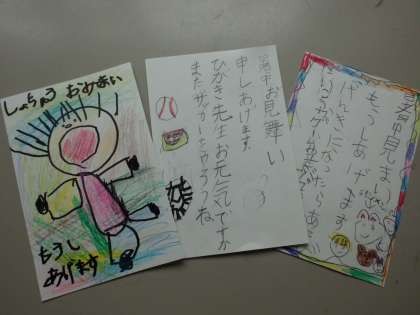 しょちゅう おみまい
もうし
あげます
暑中お見舞い
申しあげます
ひがき先生お元気ですか
またサッカーをやろうね
暑中見まい
もうしあげます
げんきになったら